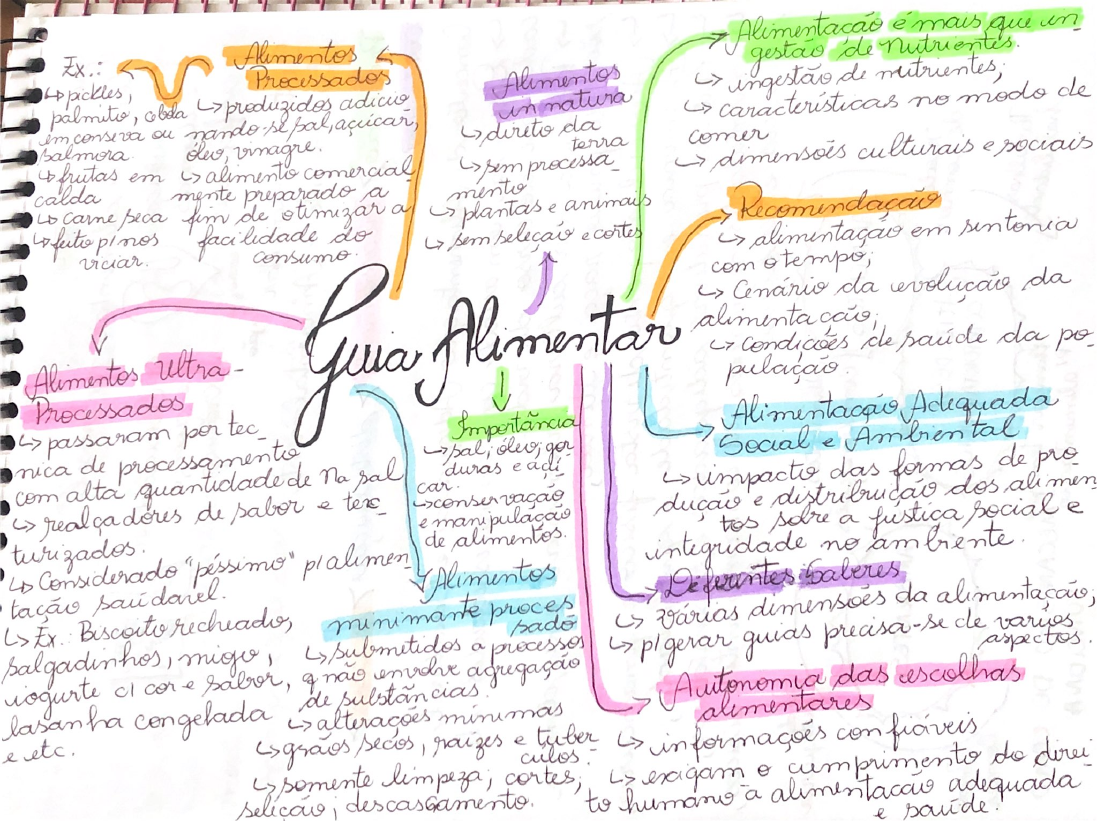 Guia Alimentar
Alimentos
Processados
↳ produzidos adicio
nando-se sal, açúcar,
óleo, vinagre.
↳ alimento comercial
mente preparado a
fim de otimizar a
facilidade do
consumo.
Ex.:
↳ pickles,
palmito,
em conseva ou
salmora.
↳ frutas em
calda
↳ carne seca
↳ feito p/ nos
viciar.
Alimentos
in natura
↳ direto da
terra
↳ sem processa-
mento
↳ plantas e animais
↳ sem seleção e cortes
Alimentacão é mais que in
gestão de Nutrientes.
↳ ingestão de nutrientes;
↳ características no modo de
comer
↳ dimensoēs culturais e sociais
Recomendação
↳ alimentação em sintonia
com o tempo;
↳ Cenário da evolução da
alimentação;
↳ condições de saúde da po-
pulação.
Alimentação Adequada
Social e Ambiental
↳ impacto das formas de pro-
dução e distribuição dos alimen-
tos sobre a justiça social e
integridade no ambiente.
Diferentes Saberes
↳ Várias dimensoēs da alimentação;
↳ p/ gerar guias precisa-se de varios
aspectos.
Autonomia das escolhas
alimentares
↳ informações confiáveis
↳ exigam o cumprimento do direi-
to humano à alimentacão adequada
e saúde.
Importância
↳ sal, óleo, gor-
duras e açú-
car.
↳ conservação
e manipulação
de alimentos.
Alimentos
minimante proces
sado
↳ submetidos a processos
q não envolve agregação
de substâncias.
↳ alterações mínimas
↳ grãos secos, raízes e tuber
culos.
↳ somente limpeza, cortes,
seleção, descascamento.
Alimentos Ultra-
Processados
↳ passaram por tec_
nica de processamento
com alta quantidade de Na sal
↳ realçadores de sabor e tex_
turizados.
↳ Considerado "péssimo" p/ alimen
tação saúdavel.
↳ Ex.: Biscoito recheado,
salgadinhos, miojo,
iogurte c/ cor e sabor,
lasanha congelada
e etc.